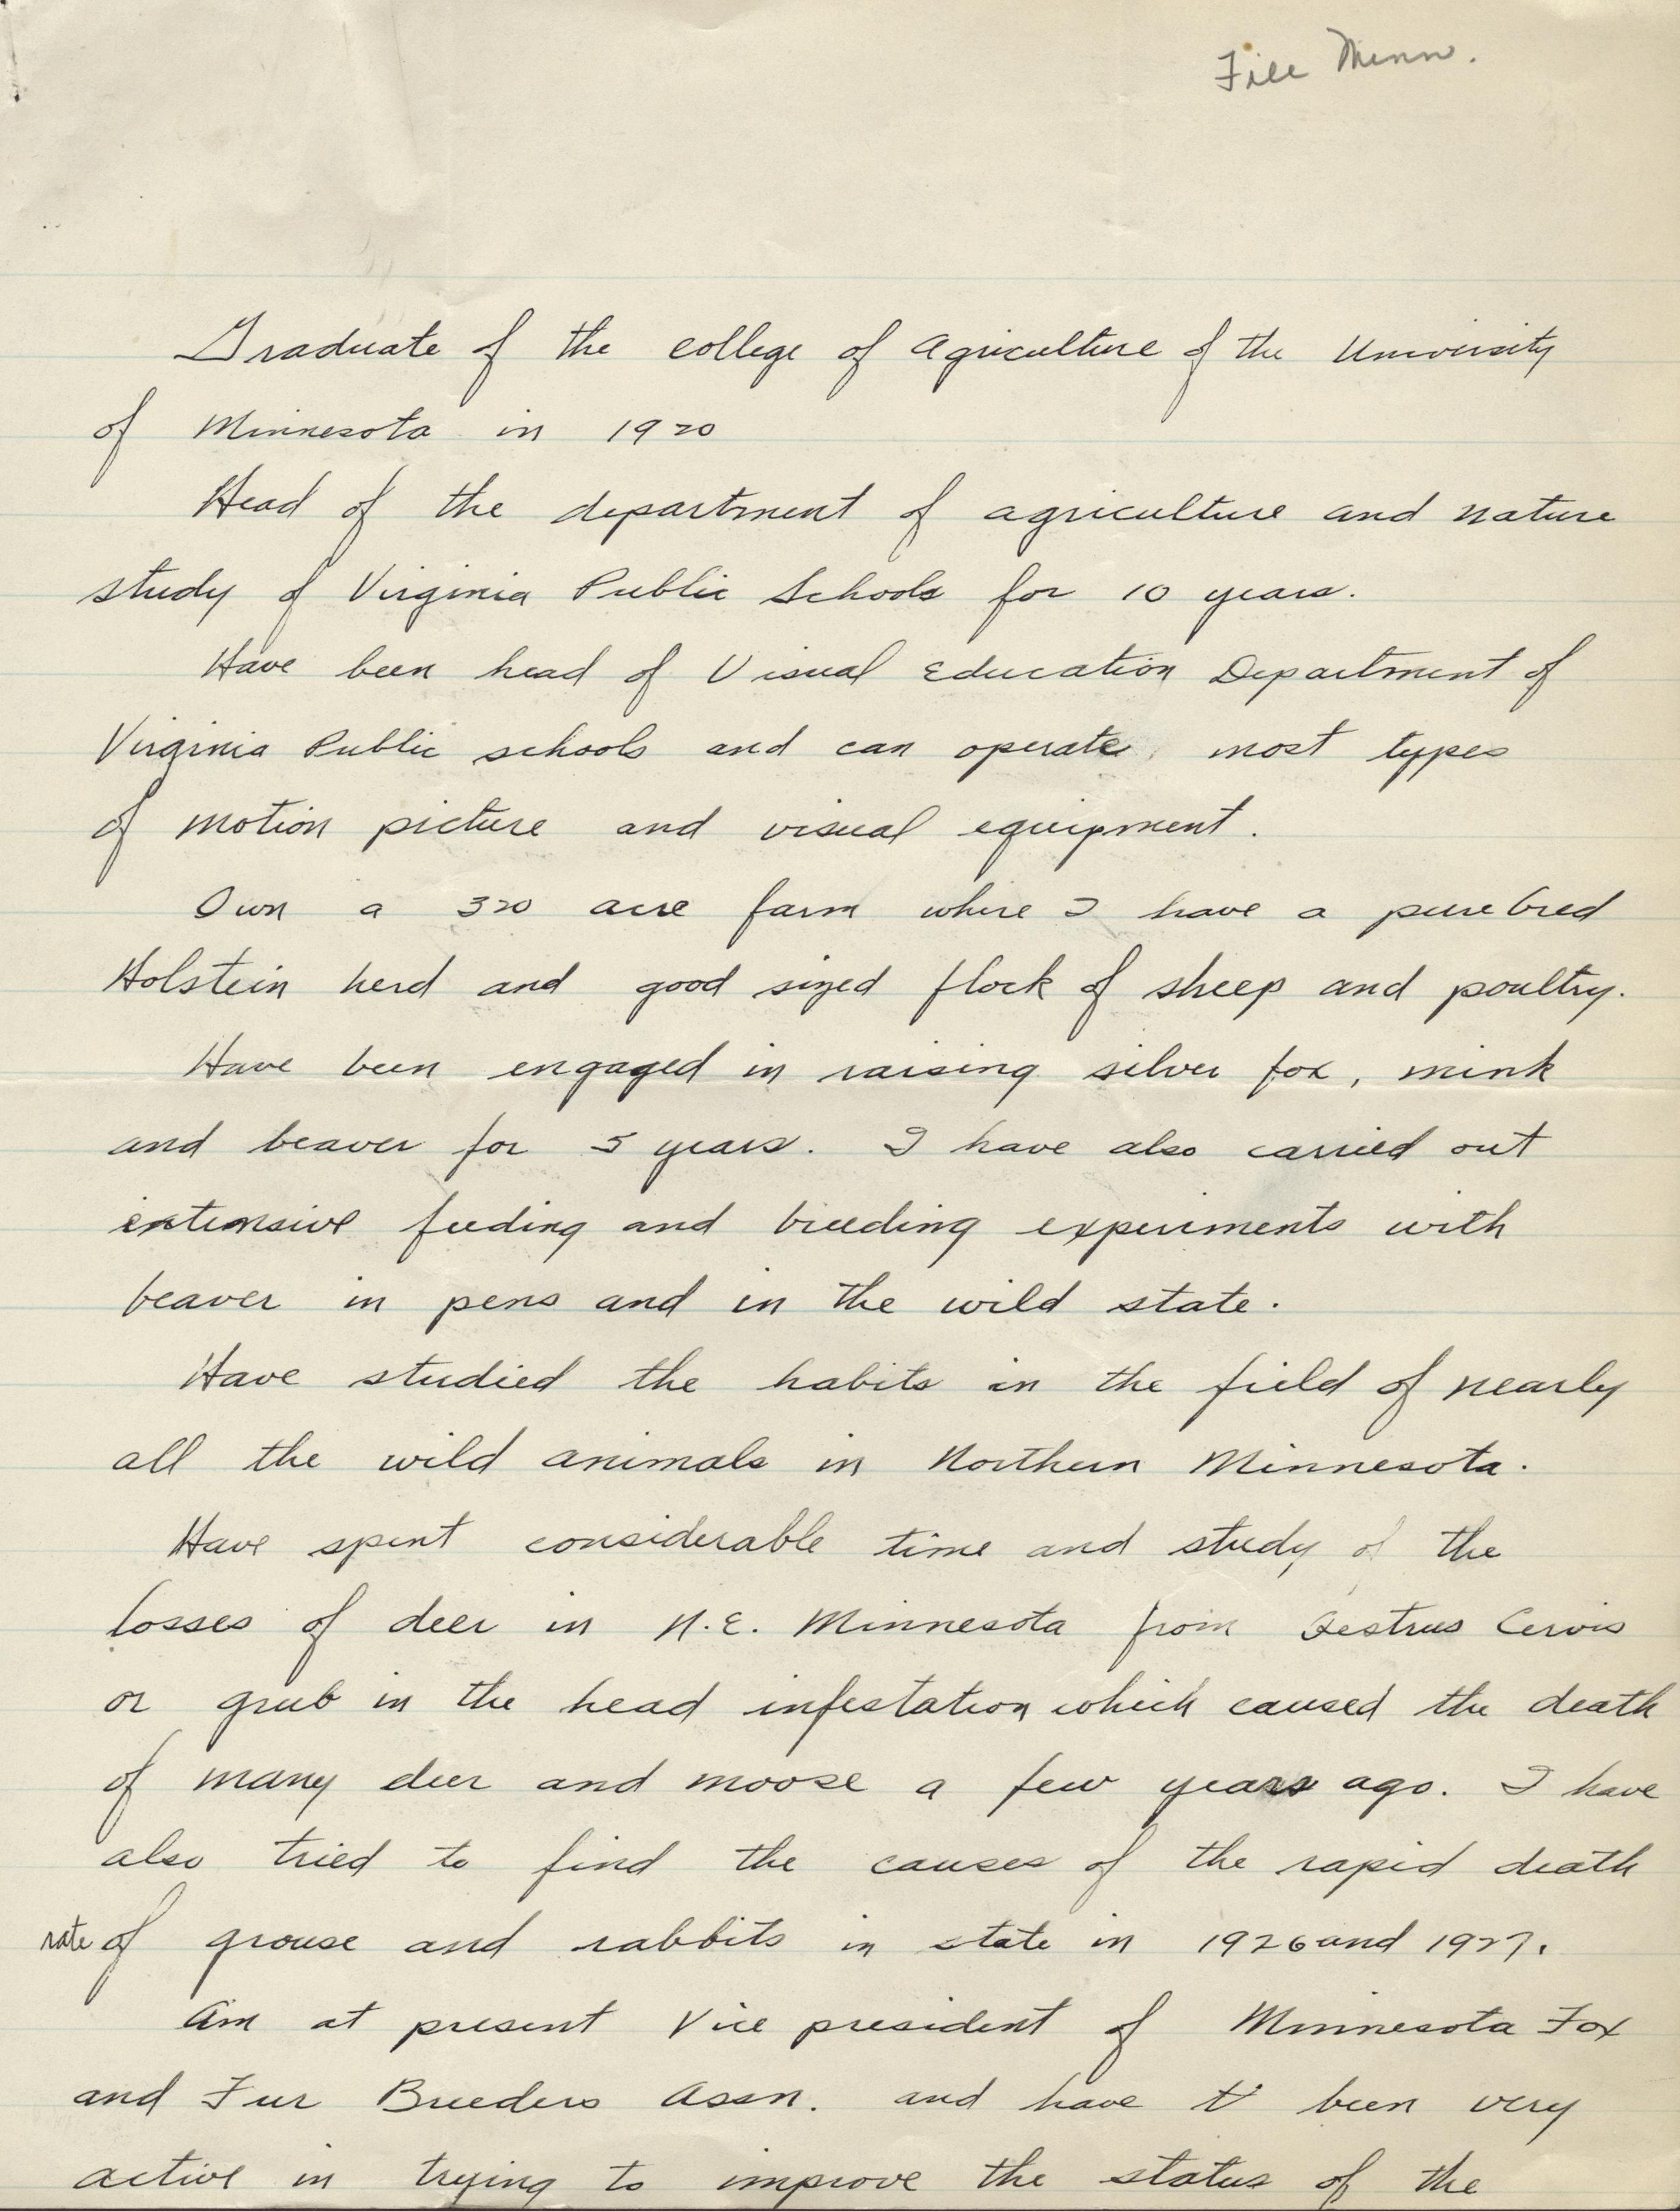 File Minn.
Graduate of the college of Agriculture of the University
of Minnesota in 1920
Head of the department of agriculture and nature
study of Virginia Public Schools for 10 years.
Have been head of Visual Education Department of
Virginia Public schools and can operate most types
of motion picture and visual equipment.
Own a 320 acre farm where I have a pure bred
Holstein herd and good sized flock of sheep and poultry.
Have been engaged in raising silver fox, mink
and beaver for 5 years. I have also carried out
extensive feeding and breeding experiments with
beaver in pens and in the wild state.
Have studied the habits in the field of nearly
all the wild animals in Northern Minnesota.
Have spent considerable time and study of the
losses of deer in N.E. Minnesota from Oestrus Cervis
or grub in the head infestation which caused the death
of many deer and moose a few years ago. I have
also tried to find the causes of the rapid death
rate of grouse and rabbits in state in 1926 and 1927.
Am at present Vice president of Minnesota Fox
and Fur Breeders Assn. and have been very
active in trying to improve the status of the